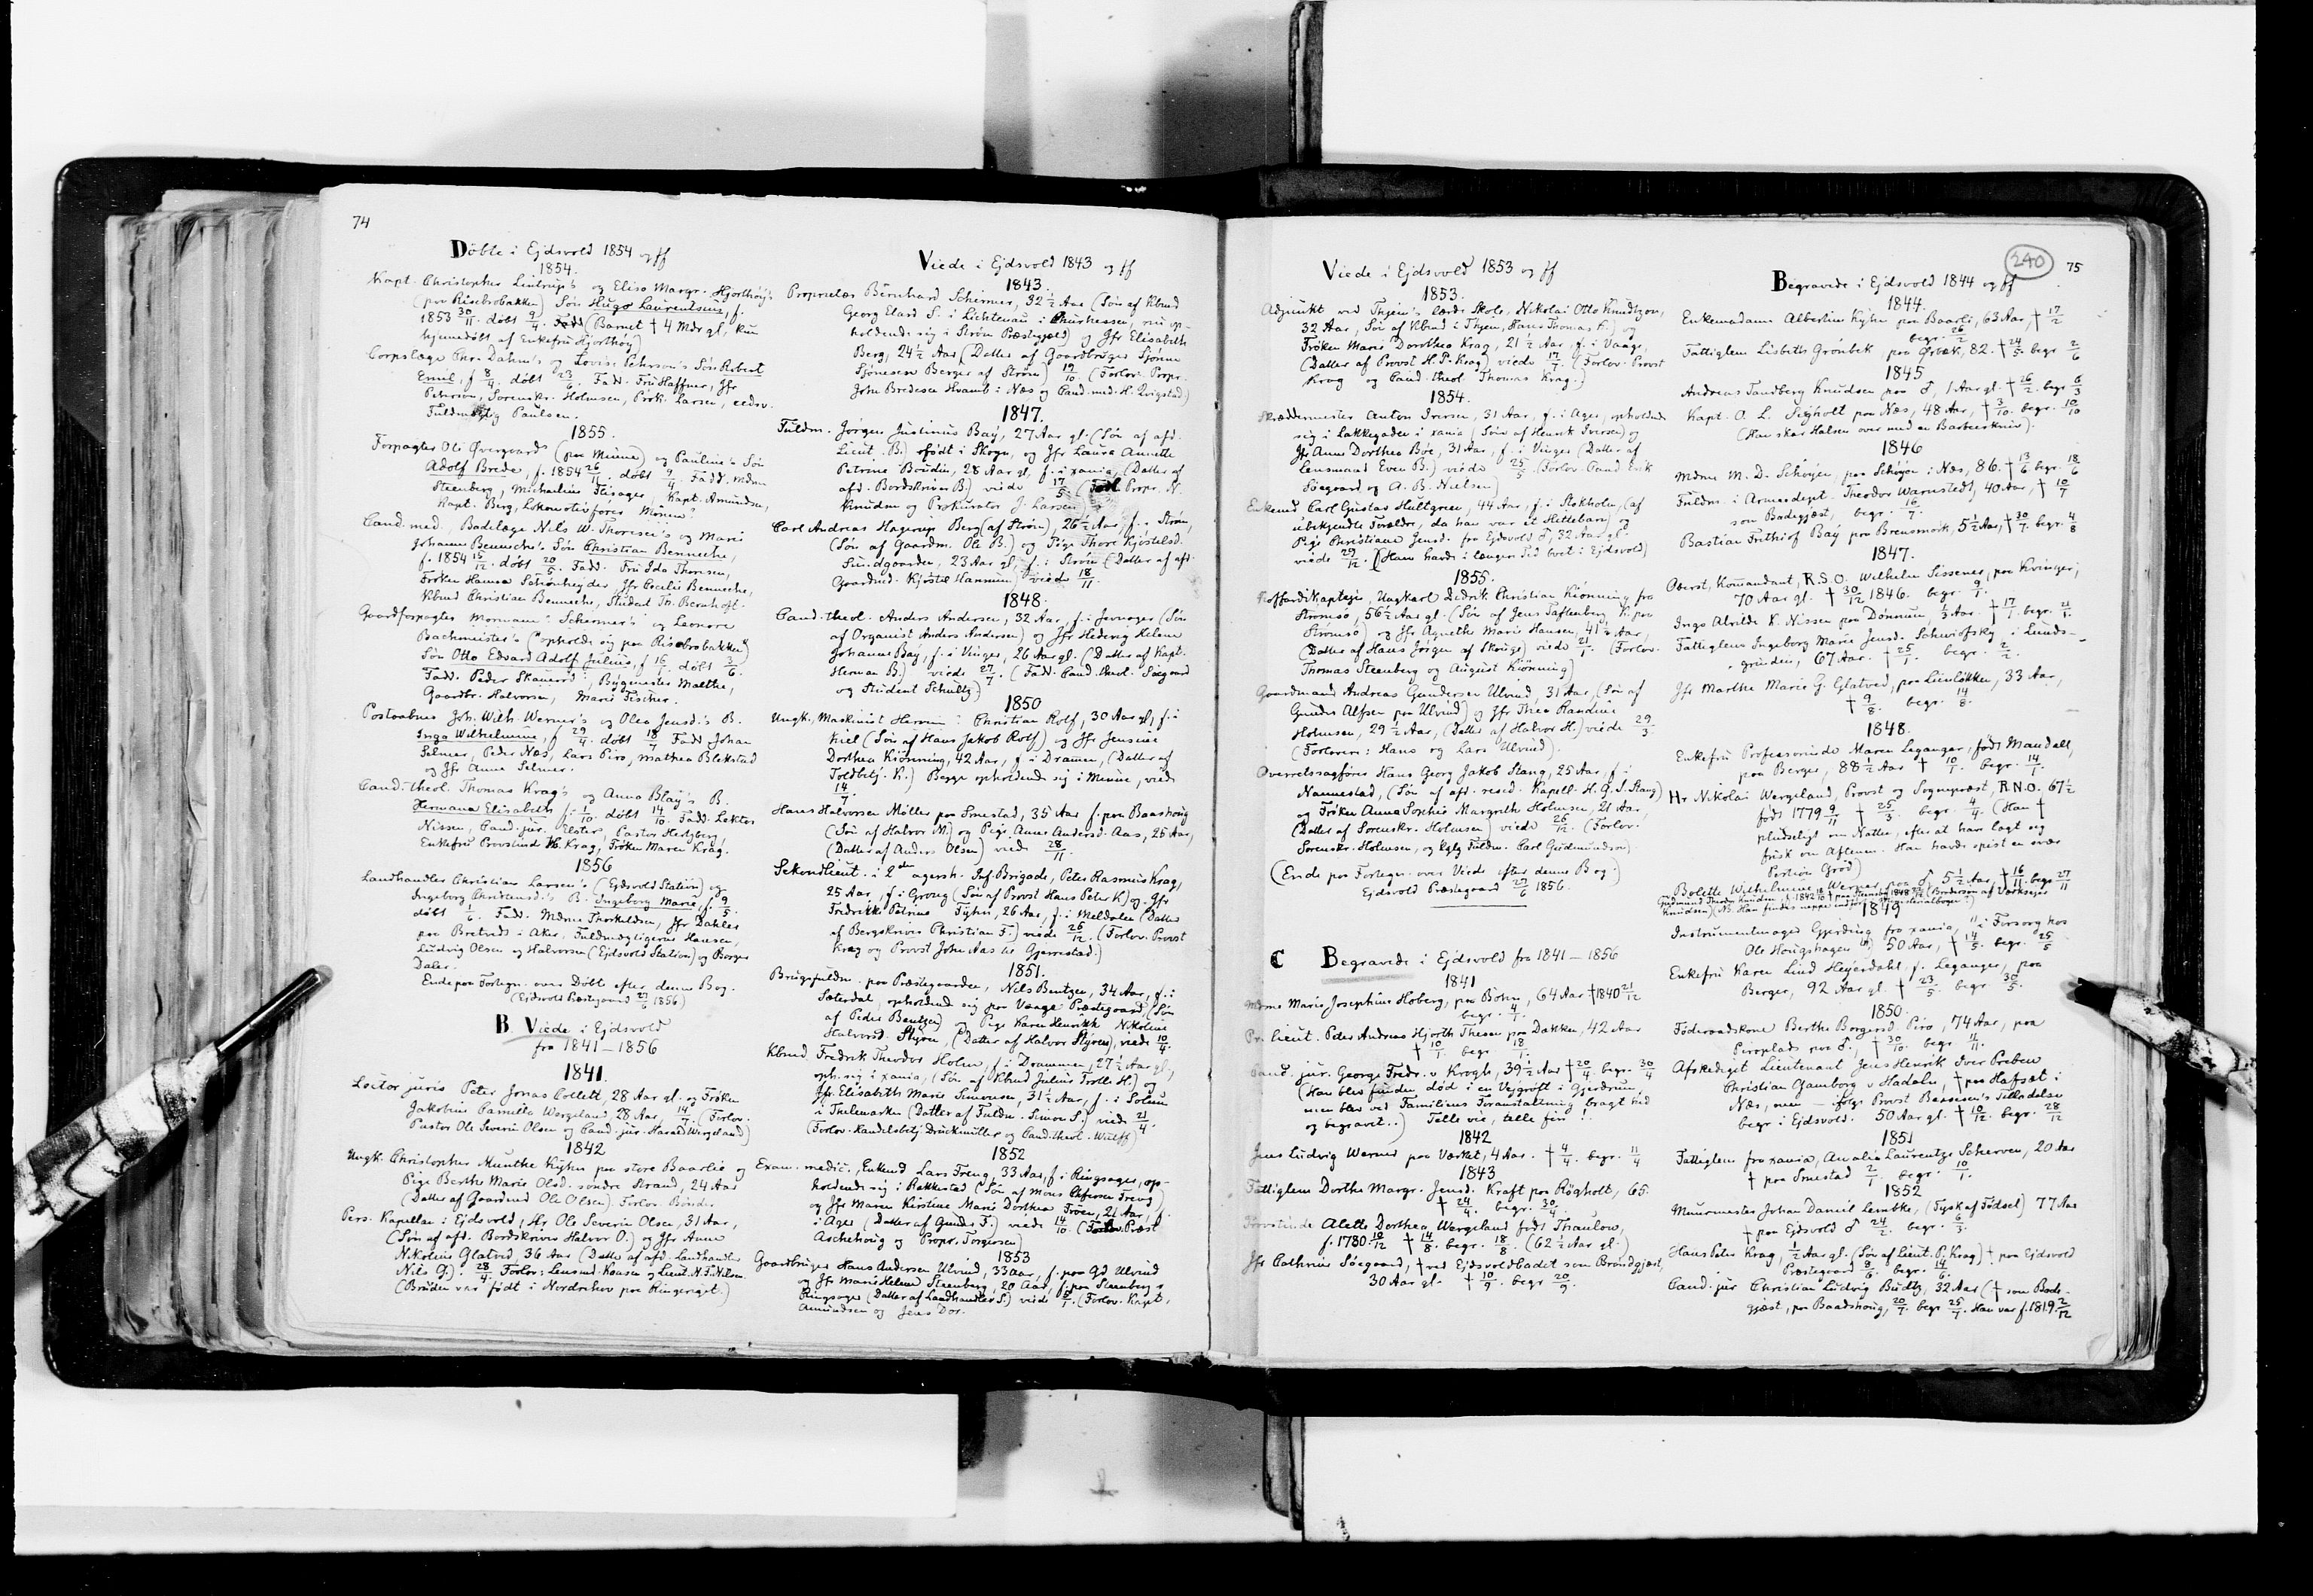 74
Döbte i Ejdsvold 1854 og ff
1854.
Kapt. Christopher Lintrup's og Elise Margr. Hjorthøy's
(paa Risebrobakken) Søn Hugo Laurentius, f.
1853 30/11. døbt 9/4. (Barnet † 4 Mdr gl, kun
hjemmedøbt af Enkefru Hjorthøy)
Corpslæge Chr. Dahm's og Lovise Peterson's Søn Robert
Emil, f 8/4. døbt 23/6. Fadd. Fru Haffner, Jfr
Peterson, Sorenskr. Holmsen, Prok. Larsen, eedsv.
Fuldmægtig Paulsen.
1855.
Forpagter Ole Øvergaard's (paa Minne) og Pauline's Søn
Adolf Brede, f. 1854 26/11. døbt 9/4. Fadd. Mdme
Steenberg, Michaeline Flisager, Kapt. Amundsen,
Kapt. Berg, Lokomotivfører Mönne?
Cand. med., Badelæge Nils W. Thoresen's og Marie
Johanne Benneche's Søn Christian Benneche,
f. 1854 15/12. døbt 20/5. Fadd. Fru Ida Thoresen,
Frøken Hanna Schønheyder, Jfr Cecilie Benneche,
Kbmd Christian Benneche, Student Th. Bernhoft.
Gaardforpagter Mormann Schermer's og Leonore
Bachmeister's ("opholde sig paa Risebrobakken")
Søn Otto Edvard Adolf Julius, f 16/1. døbt 3/6.
Fadd. Peder Skancord, Bygmester Malthe,
Gaardbr. Halvorsen, Marie Fischer.
Postaabner Joh. Wilh. Werner's og Olea Jensd.'s B.
Inga Wilhelmine, f 29/4. døbt 18/7 Fadd Johan
Selmer, Peder Næs, Lars Piro, Mathea Blekstad
og Jfr Anna Selmer.
Cand. theol. Thomas Krag's og Anna Blay's B.
Hermana Elisabeth f. 1/10. døbt 14/10. Fadd. Lektor
Nissen, Cand. jur. Elster, Pastor Hertzberg,
Enkefru Provstinde Krag, Frøken Maren Krag.
1856
Landhandler Christian Larsen's (Ejdsvold Station) og
Ingeborg Christensd.'s B. Ingeborg Marie, f. 9/5.
døbt 1/6. Fadd. Mdme Thorkildsen, Jfr Dahler
paa Bretvedt i Aker, Fuldmægtigerne Hansen,
Ludvig Olsen og Halvorsen (Ejdsvold Station) og Borger
Daler.
Ende paa Fortegn. over Døbte efter denne Bog.
(Ejdsvold Præstegaard 27/6 1856)
B Viede i Ejdsvold
fra 1841–1856
1841.
Lector juris Peter Jonas Collett, 28 Aar gl. og Frøken
Jakobine Camilla Wergeland, 28 Aar, 14/7. (Forlov.
Pastor Ole Severin Olsen og Cand. jur. Harald Wergeland)
1842
Ungk. Christopher Munthe Kyhn paa store Baarlie og
Pige Berthe Marie Olsd. søndre Strand, 24 Aar
(Datter af Gaardmd Ole Olsen). Forlov. Bønder.
Pers. Kapellan i Ejdsvold, Hr Ole Severin Olsen, 31 Aar,
(Søn af afd. Bordskriver Halvor O.) og Jfr Anne
Nikoline Glatved, 36 Aar (Datter af afd. Landhandler
Nils G). 28/4. Forlov: Lensmd. Knusen og Lieut. N. Fr. Nilsen.
(Bruden var født i Nordrehov paa Ringerige.)
Viede i Ejdsvold 1843 og ff
1843.
Proprietær Bernhard Schirmer, 32 1/2 Aar (Søn af Kbmd
Georg Elard S. i Lichtenau i Churhessen, nu op-
holdende sig i Strøm Præstegjæld) og Jfr Elisabeth
Berg, 24 1/2 Aar (Datter af Gaardbruger Sjønne
Sjønesen Berger af Strøm) 19/10. (Forlov. Propr.
John Bredesen Hvamb i Næs og Cand. med. H. Qvigstad)
1847.
Fuldm. Jørgen Justinus Bay, 27 Aar gl. (Søn af afd.
Lieut. B.) født i Skogn, og Jfr Laura Annette
Petrine Boudin, 28 Aar gl, f. i Xania, (Datter af
afd. Bordskriver B.) viede 17/5. (Propr. N.
Knudsen og Prokurator J. Larsen)
Carl Andreas Hagerup Berg (af Strøm), 26 1/2 Aar, f. i Strøm,
(Søn af Gaardm. Ole B.) og Pige Thore Kjøstelsd.
Sundgaarden, 23 Aar gl, f. i Strøm (Datter af afd.
Gaardmd. Kjøstel Hannum) viede 18/11.
1848.
Cand. theol. Anders Andersen, 32 Aar, f. i Jevnager (Søn
af Organist Anders Andersen) og Jfr Hedevig Helene
Johanne Bay, f. i Vinger, 26 Aar gl. (Datter af Kapt.
Herman B.) viede 27/7. (Fadd. Cand. theol. Søegaard
og Student Schultz)
1850
Ungk., Maskinist Herman Christian Rolf, 30 Aar gl, f. i
Kiel (Søn af Hans Jakob Rolf) og Jfr Jensine
Dorthea Kiønning, 42 Aar, f. i Dramen, (Datter af
Toldbetj. K.) Begge opholdende sig i Minne, viede
14/7.
Hans Halvorsen Møller paa Smestad, 35 Aar f. paa Baashoug
(Søn af Halvor M.) og Pige Anne Andersd. Aas, 25 Aar,
(Datter af Anders Olsen) viede 28/11.
Sekondlieut. i 2den agersh. Inf. Brigade, Peter Rasmus Krag,
25 Aar, f. i Grong (Søn af Provst Hans Peter K) og Jfr
Fredrikke Petrine Fyhn, 26 Aar, f. i Meldalen (Datter
af Bergskriver Christian F.) viede 26/12. (Forlov. Provst
Krag og Provst John Aas til Gjerrestad.)
1851.
Brugsfuldm. paa Præstegaarden, Nils Bentzen, 34 Aar, f. i
Sæterdal, opholdend sig paa Vaage Præstegaard, (Søn
af Peder Bentzen) og Pige Karen Henrikke Nikoline
Halvorsd. Styren, (Datter af Halvor Styren), viede 10/4.
Kbmd. Fredrik Theodor Holm, f. i Drammen, 27 1/2 Aar gl,
oph. sig i Xania, (Søn af Kbmd Julius Trolle H.) og
Jfr Elisabeth Marie Simonsen, 31 1/2 Aar, f. i Solum
i Thelemarken (Datter af Fuldm. Simon S.) viede 21/4.
(Forlov. Handelsbetj. Drückmüller og Cand. theol. Wulff)
1852
Exam. medic., Enkemd Lars Treng, 33 Aar, f. i Ringsager, op-
holdende sig i Rakkestad (Søn af Mons Treng)
og Jfr Maren Kirstine Marie Dorthea Troen, 21 Aar, f.
i Ager (Datter af Gunder F.) viede 14/10. (Forlov. Præst
Aschehoug og Propr. Torgersen)
1853
Gaardbruger Hans Andersen Ulvind, 33 Aar, f. paa Gd Ulvind
og Jfr Marie Helene Steenberg, 20 Aar, f. paa Steenberg i
Ringsager (Datter af Landhandler S.) viede 5/1. (Forlov. Kapt.
Amundsen og Jens Dor.
Viede i Ejdsvold 1853 og ff
1853.
Adjunkt ved Thjem's lærde Skole, Nikolai Otto Knudtzon,
32 Aar, Søn af Kbmd i Thjem, Hans Thomas K.) og
Frøken Marie Dorothea Krag, 21 1/2 Aar, f. i Vaage,
(Datter af Provst H. P. Krag) viede 17/7. (Forlov. Provst
Krag og Cand. theol. Thomas Krag.)
1854.
Skræddermester Anton Iversen, 31 Aar, f. i Ager, opholdende
sig i Lakkegaden i Xania (Søn af Henrik Iversen) og
Jfr Anne Dorthea Bøe, 31 Aar, f. i Vinger (Datter af
Lensmand Even B.) viede 25/5. (Forlov. Cand. Erik
Søegaard og A. B. Nielsen)
Enkemd Carl Gustav Hultgreen, 44 Aar, f. i Stokholm, (af
ubekjendte Forældre, da han var et Hittebarn) og
Pige Christiane Jensd. fra Ejdsvold ♂, 32 Aar gl.
viede 29/12. (Han havde i længere Tid boet i Ejdsvold)
1855.
Koffardikaptejn, Ungkarl Didrik Christian Kiønning fra
Strømsø, 56 1/2 Aar gl. (Søn af Jens Taftenberg K. paa
Strømsø) og Jfr Agnethe Marie Hansen, 41 1/2 Aar,
(Datter af Hans Jørgen af Skouge) viede 21/1. (Forlov.
Thomas Steenberg og August Kiønning)
Gaardmand Andreas Gundersen Ulvind, 31 Aar, (Søn af
Gunder Alfsen paa Ulvind) og Jfr Thea Randine
Holmsen, 29 1/2 Aar, (Datter af Halvor H.) viede 29/3.
(Forlovere: Hans og Lars Ulvind).
Overretssagfører Hans Georg Jakob Stang, 25 Aar, f. i
Nannestad, (Søn af afd. resid. Kapell. H. G. J. Stang)
og Frøken Anna Sophie Margrethe Holmsen, 21 Aar.
(Datter af Sorenskr. Holmsen) viede 26/12. (Forlov.
Sorenskr. Holmsen, og kglg Fuldm. Carl Gudmundsen)
(Ende paa Fortegn. over Viede efter denne Bog.
Ejdsvold Præstegaard 27/6 1856.
C Begravede i Ejdsvold fra 1841–1856
1841
Mdme Marie Josephine Hoberg, paa Bøhn, 64 Aar † 1840 21/12
begr. 4/1.
Pr. Lieut. Peder Andreas Hjorth Thesen paa Dakken, 42 Aar
† 10/1. begr 18/1.
Cand. jur. George Fredr. v Krogh, 39 1/2 Aar † 20/4. begr. 30/4
(Han blev funden død i en Vejgrøft i Gjerdrum,
men blev ved Familiens Foranstaltning bragt hid
og begravet..) Telle vie, telle fin!!
1842
Jens Ludvig Werner paa Værket, 4 Aar. † 4/4. begr. 11/4
1843
Fattiglem Dorthe Margr. Jensd. Kraft paa Røgholt, 65.
† 24/4. begr. 30/4.
Provstinde Alette Dorthea Wergeland født Thaulow,
f. 1780 10/12 † 14/8. begr. 18/8. (62 1/2 Aar gl.)
Jfr Cathrine Søegaard, † ved Ejdsvoldbadet som Brøndgjæst,
30 Aar gl. † 10/9. begr 20/9.
240
75
Begravede i Ejdsvold 1844 og ff
1844.
Enkemadame Albertine Kyhn paa Baarli, 63 Aar, † 17/2
begr. 26/2
Fattiglem Lisbeth Grønbek paa Ørbæk, 82. † 24/5. begr 2/6
1845
Andreas Tandberg Knudsen paa ♂, 1 Aar gl. † 26/2. begr 6/3
Kapt. A. L. Segholt paa Næs, 48 Aar, † 3/10. begr. 10/10
(Han skar Halsen over med en Barbeerkniv).
1846
Mdme M. D. Schøyen, paa Schøyen i Næs, 86. † 13/6 begr. 18/6
Fuldm. i Armeedept. Theodor Warnstedt, 40 Aar, † 10/7
som Badegjæst, begr. 16/7.
Bastian Frithiof Bay paa Brensmork, 5 1/2 Aar, † 30/7. begr. 4/8
1847.
Oberst, Komandant, R.S.O. Wilhelm Sissener, paa Kvinger,
70 Aar gl. † 30/12 1846. begr. 9/1.
Inga Alvilde N. Nissen paa Dønnum, 1/3 Aar. † 17/1. begr. 21/1.
Fattiglem Ingeborg Marie Jensd. Schwiofsky i Lunds-
grinden, 67 Aar. † 25/1. begr. 2/2.
Jfr Marthe Marie G. Glatved, paa Lienløkken, 33 Aar,
† 9/8. begr. 14/8.
1848.
Enkefru Professorinde Maren Leganger, født Mandall,
paa Berger, 88 1/2 Aar † 10/1. begr. 14/1.
Hr Nikolai Wergeland, Provst og Sognepræst, R.N.O. 67 1/2
født 1779 9/11 † 25/3. begr. 4/4. (Han †
pludseligt om Natten, efter at have lagt sig
frisk om Aftenen. Han havde spist en svær
Portion Grød)
Bolette Wilhelmine Werner paa ♂, 5 1/2 Aar, † 16/11. begr 27/11
1849
Instrumentmager Gjerding fra Xania, "i Forsorg hos
Ole Hougshagen" 50 Aar, † 14/5. begr. 25/5
Enkefru Karen Lind Heyerdahl, f. Leganger, paa
Berger, 92 Aar gl. † 23/5. begr. 30/5.
1850.
Føderaadskone Berthe Borgersd Piro, 74 Aar, paa
Piroplads paa ♂, † 30/10. begr 11/11.
Afskediget Lieutenant Jens Henrik Iver Preben
Christian Gamborg v Hadeln, † paa Hafsæt i
Næs, men — ifølge Provst Bassesen's Tilladelse
begr i Ejdsvold. 50 Aar gl. † 10/12. begr. 28/12
1851
Fattiglem fra Xania, Amalia Laurentze Scherven, 20 Aar
† paa Smestad 2/1. begr. 10/1.
1852
Muurmester Johan Daniel Lembke, (Tysk af Fødsel) 77 Aar
† paa Ejdsvold ♂ 24/2. begr. 6/3.
Hans Peter Krag, 1/2 Aar gl. (Søn af Lieut. P. Krag) † paa Ejdsvold
Præstegaard 8/6. begr. 14/6.
Cand. jur Christian Ludvig Budtz, 32 Aar († som Bade-
gjæst, paa Baadshoug, 20/7. begr 25/7. Han var f. 1819 2/12